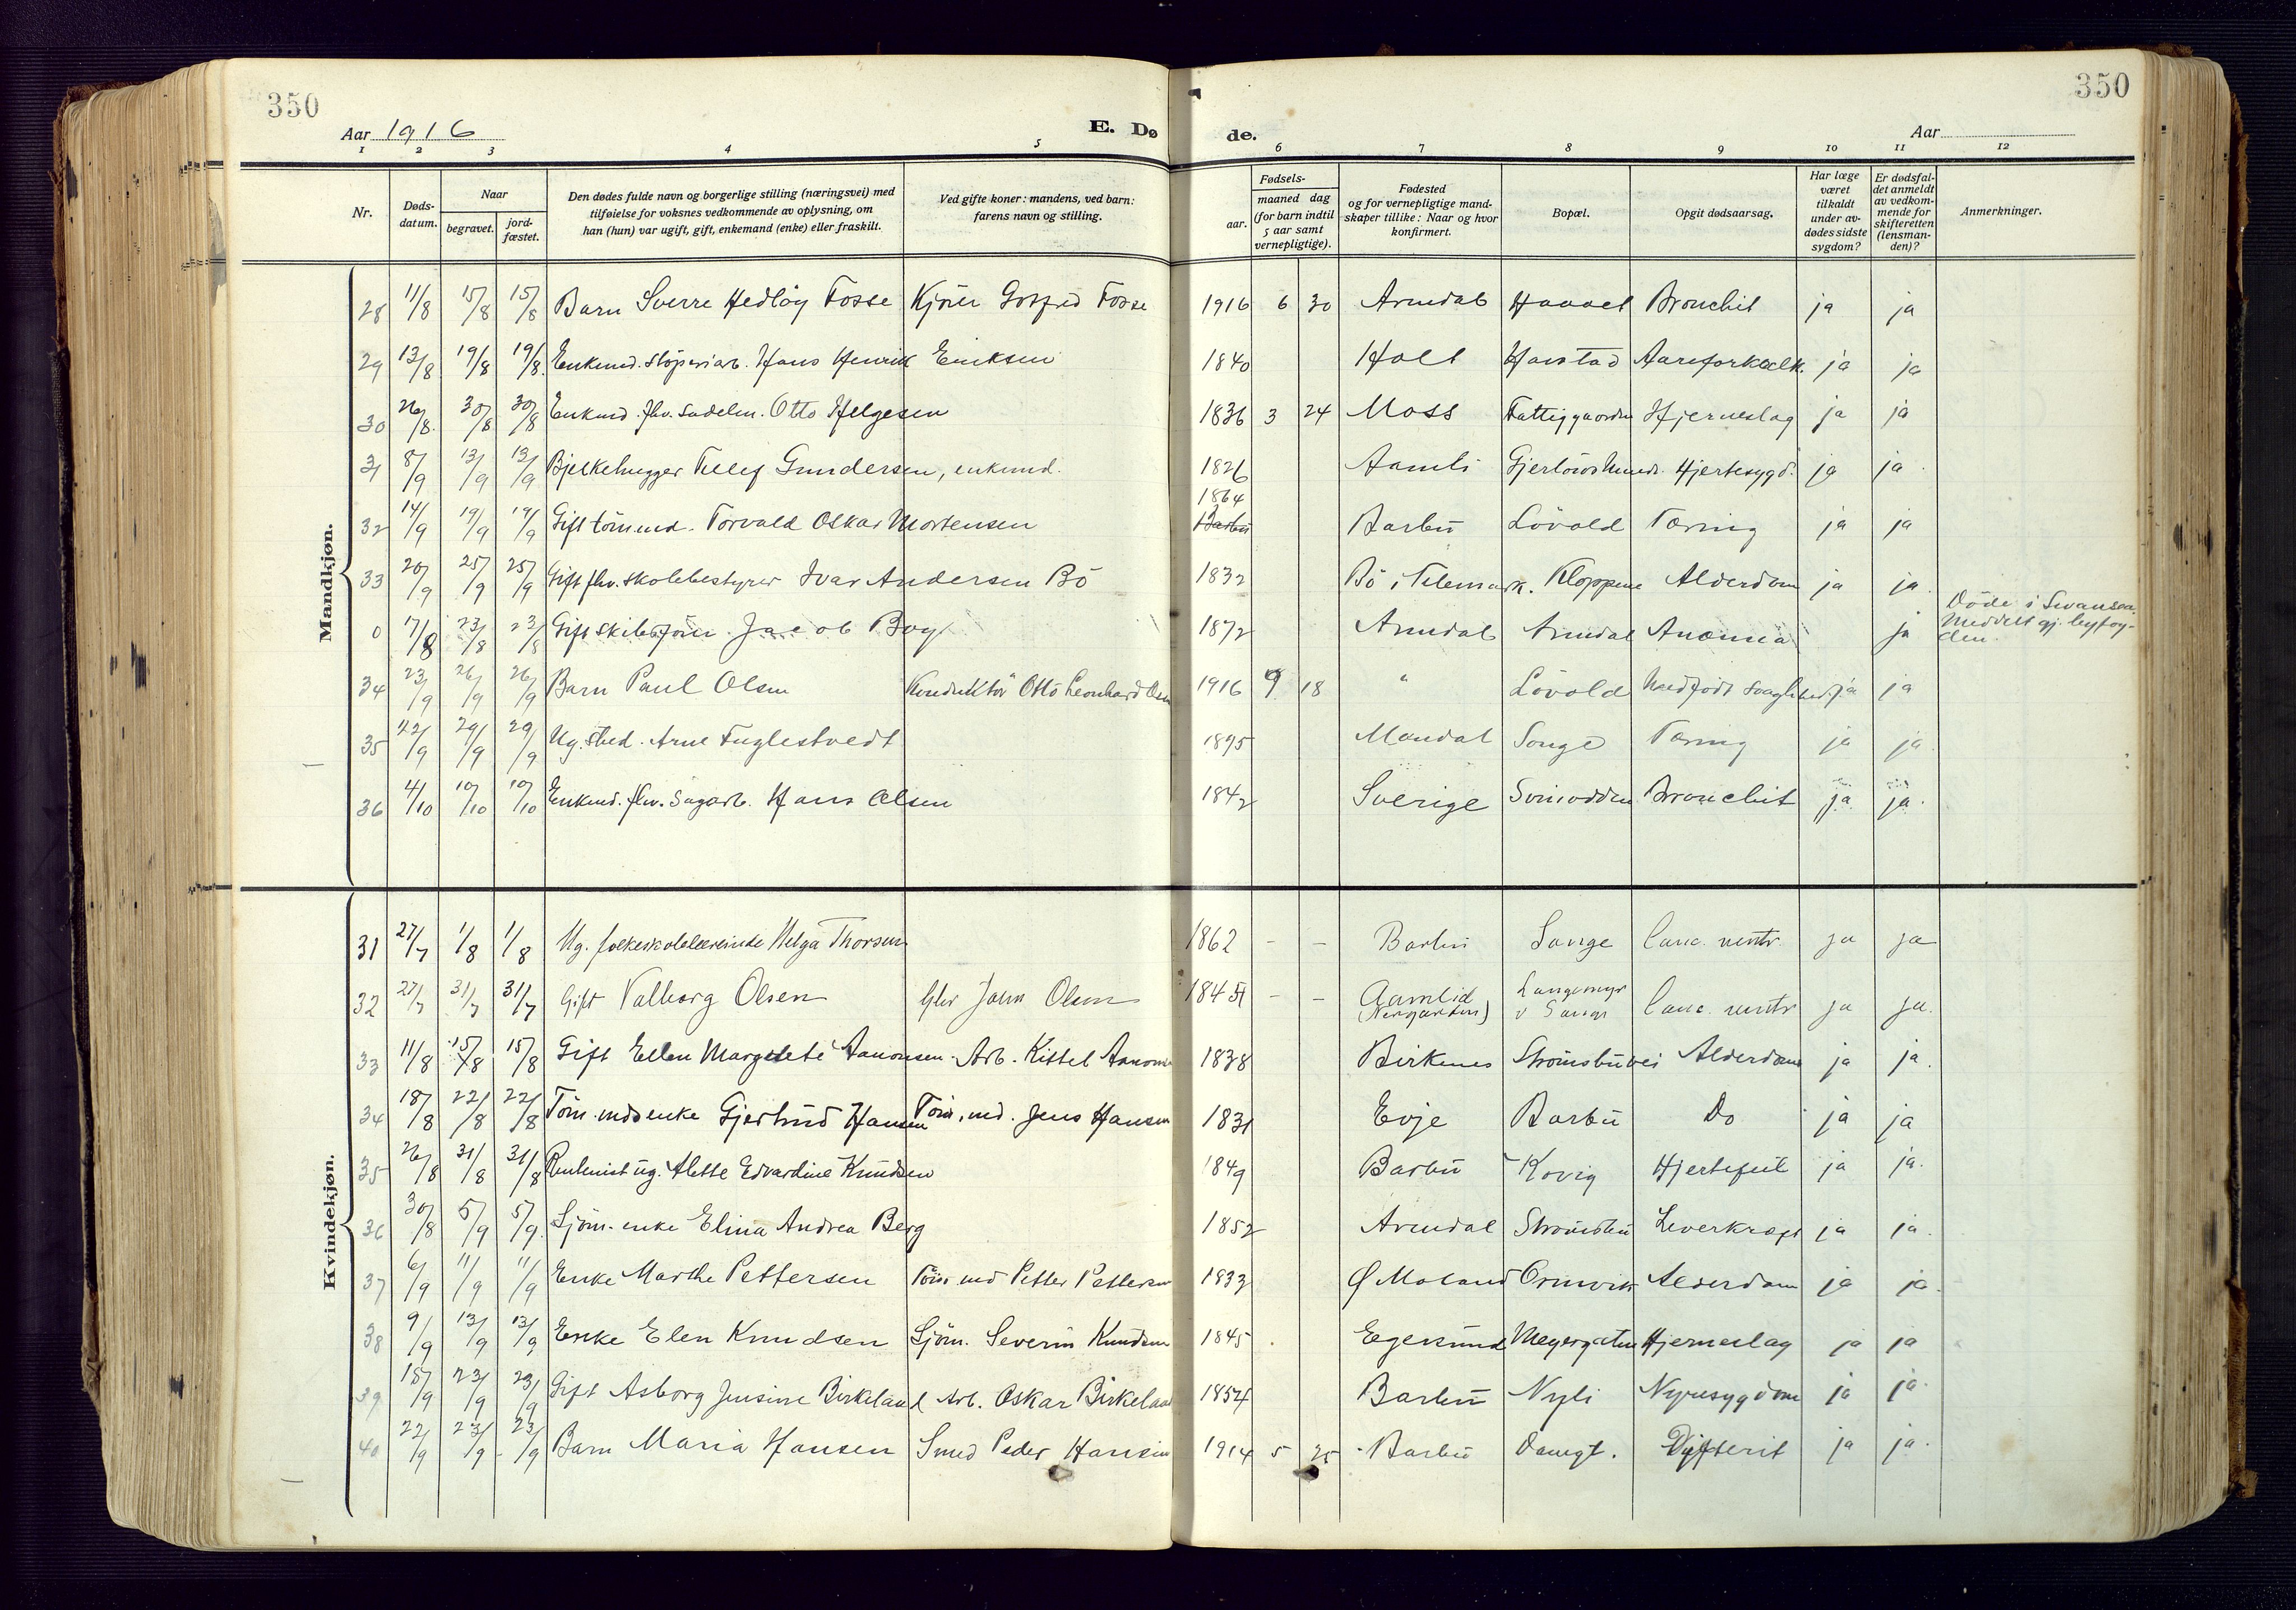 350
350
Aar 1916
E. Dø
de.
Aar
1 2 3 4 5 6 7 8 9 10 11 12
Nr.
Døds-datum.
Naar
begravet.
jord-fæstet.
Den dødes fulde navn og borgerlige stilling (næringsvei) med
tilføielse for voksnes vedkommende av oplysning, om
han (hun) var ugift, gift, enkemand (enke) eller fraskilt.
Ved gifte koner: mandens, ved barn:
farens navn og stilling.
Fødsels-
aar.
maaned dag
(for barn indtil
5 aar samt
vernepligtige).
Fødested
og for vernepligtige mand-
skaper tillike: Naar og hvor
konfirmert.
Bopæl.
Opgit dødsaarsag.
Har læge
været
tilkaldt
under av-
dødes sidste
sygdom?
Er dødsfal-
det anmeldt
av vedkom-
mende for
skifteretten
(lensman-
den)?
Anmerkninger.
Mandkjøn.
28 11/8 15/8 15/8 Barn Sverre Hedløy Fosse Kjører Gotfred Fosse 1916 6 30 Arendal Bronchit ja ja
29 13/8 19/8 19/8 Enkemd. støperiarb. Hans Henrik Eriksen 1840 Holt Harstad Aareforkalk. ja ja
30 26/8 30/8 30/8 Enkmd. fhv. sadelm. Otto Helgesen 1836 3 24 Moss Fattiggaarden Hjerneslag ja ja
31 8/9 13/9 13/9 Bjelkehugger Tellef Gundersen, enkmd. 1826 Aamli Hjertesygd. ja ja
32 14/9 19/9 19/9 Gift tømmd. Torvald Oskar Mortensen 1864 Barbu Løvold Tæring ja ja
33 20/9 25/9 25/9 Gift fhv. skolebestyrer Ivar Andersen Bö 1832 Bö i Telemark. Kloppene Alderdom ja ja
0 17/8 23/8 23/8 Gift skibstøm. Jacob Boy 1872 Arendal Arendal Anæmia ja Döde i Swansea.
34 23/9 26/9 26/9 Barn Paul Olsen Konduktør Otto Leonhard Olsen 1916 9 18 " Løvold Medfødt svaghed. ja ja
35 22/9 29/9 29/9 Ug. sted. Arne Fuglestvedt 1895 Mandal Songe Tæring ja ja.
36 4/10 10/10 10/10 Enkmd. fhv. sagarb. Hans Olsen 1842 Sverige Svinodden Bronchit ja ja.
Kvindekjøn.
31 27/7 1/8 1/8 Ug. folkeskolelærerinde Helga Thorsen 1862 - - Barbu Songe Canc. ventr. ja ja
32 27/7 31/7 31/7 Gift Valborg Olsen Olsen 1845 - - Aamlid Langemyr v Songe Canc. ventr. ja ja.
33 11/8 15/8 15/8 Gift Ellen Margrete Aanonsen. Arb. Kittel Aanonsen 1838 Birkenes Strømsbuvei Alderdom ja ja.
34 18/8 22/8 22/8 Tøm.mdsenke Gjertrud Hansen Tøm.md. Jens Hansen 1831 Evje Barbu Do ja ja
35 26/8 31/8 31/8 Rentenist ug. Alette Edvardine Knudsen 1849 Barbu Kovig Hjertefeil ja ja.
36 30/8 5/9 5/9 Sjøm.enke Elina Andrea Berg 1852 Arendal Strømsbu Leverkræft ja ja.
37 6/9 11/9 11/9 Enke Marthe Pettersen Tøm.md Petter Pettersen 1833 Ø Moland Alderdom ja ja.
38 9/9 13/9 13/9 Enke Elen Knudsen Sjøm. Severin Knudsen 1845 Egersund Meyergaten Hjerneslag ja ja
39 18/9 23/9 23/9 Gift Asborg Jensine Birkeland Arb. Oskar Birkeland 1854 Barbu Nyli Nyresygdom ja ja.
40 22/9 23/9 23/9 Barn Maria Hansen Smed Peder Hansen 1914 5 25 Barbu Damgt. Dyfterit ja ja.